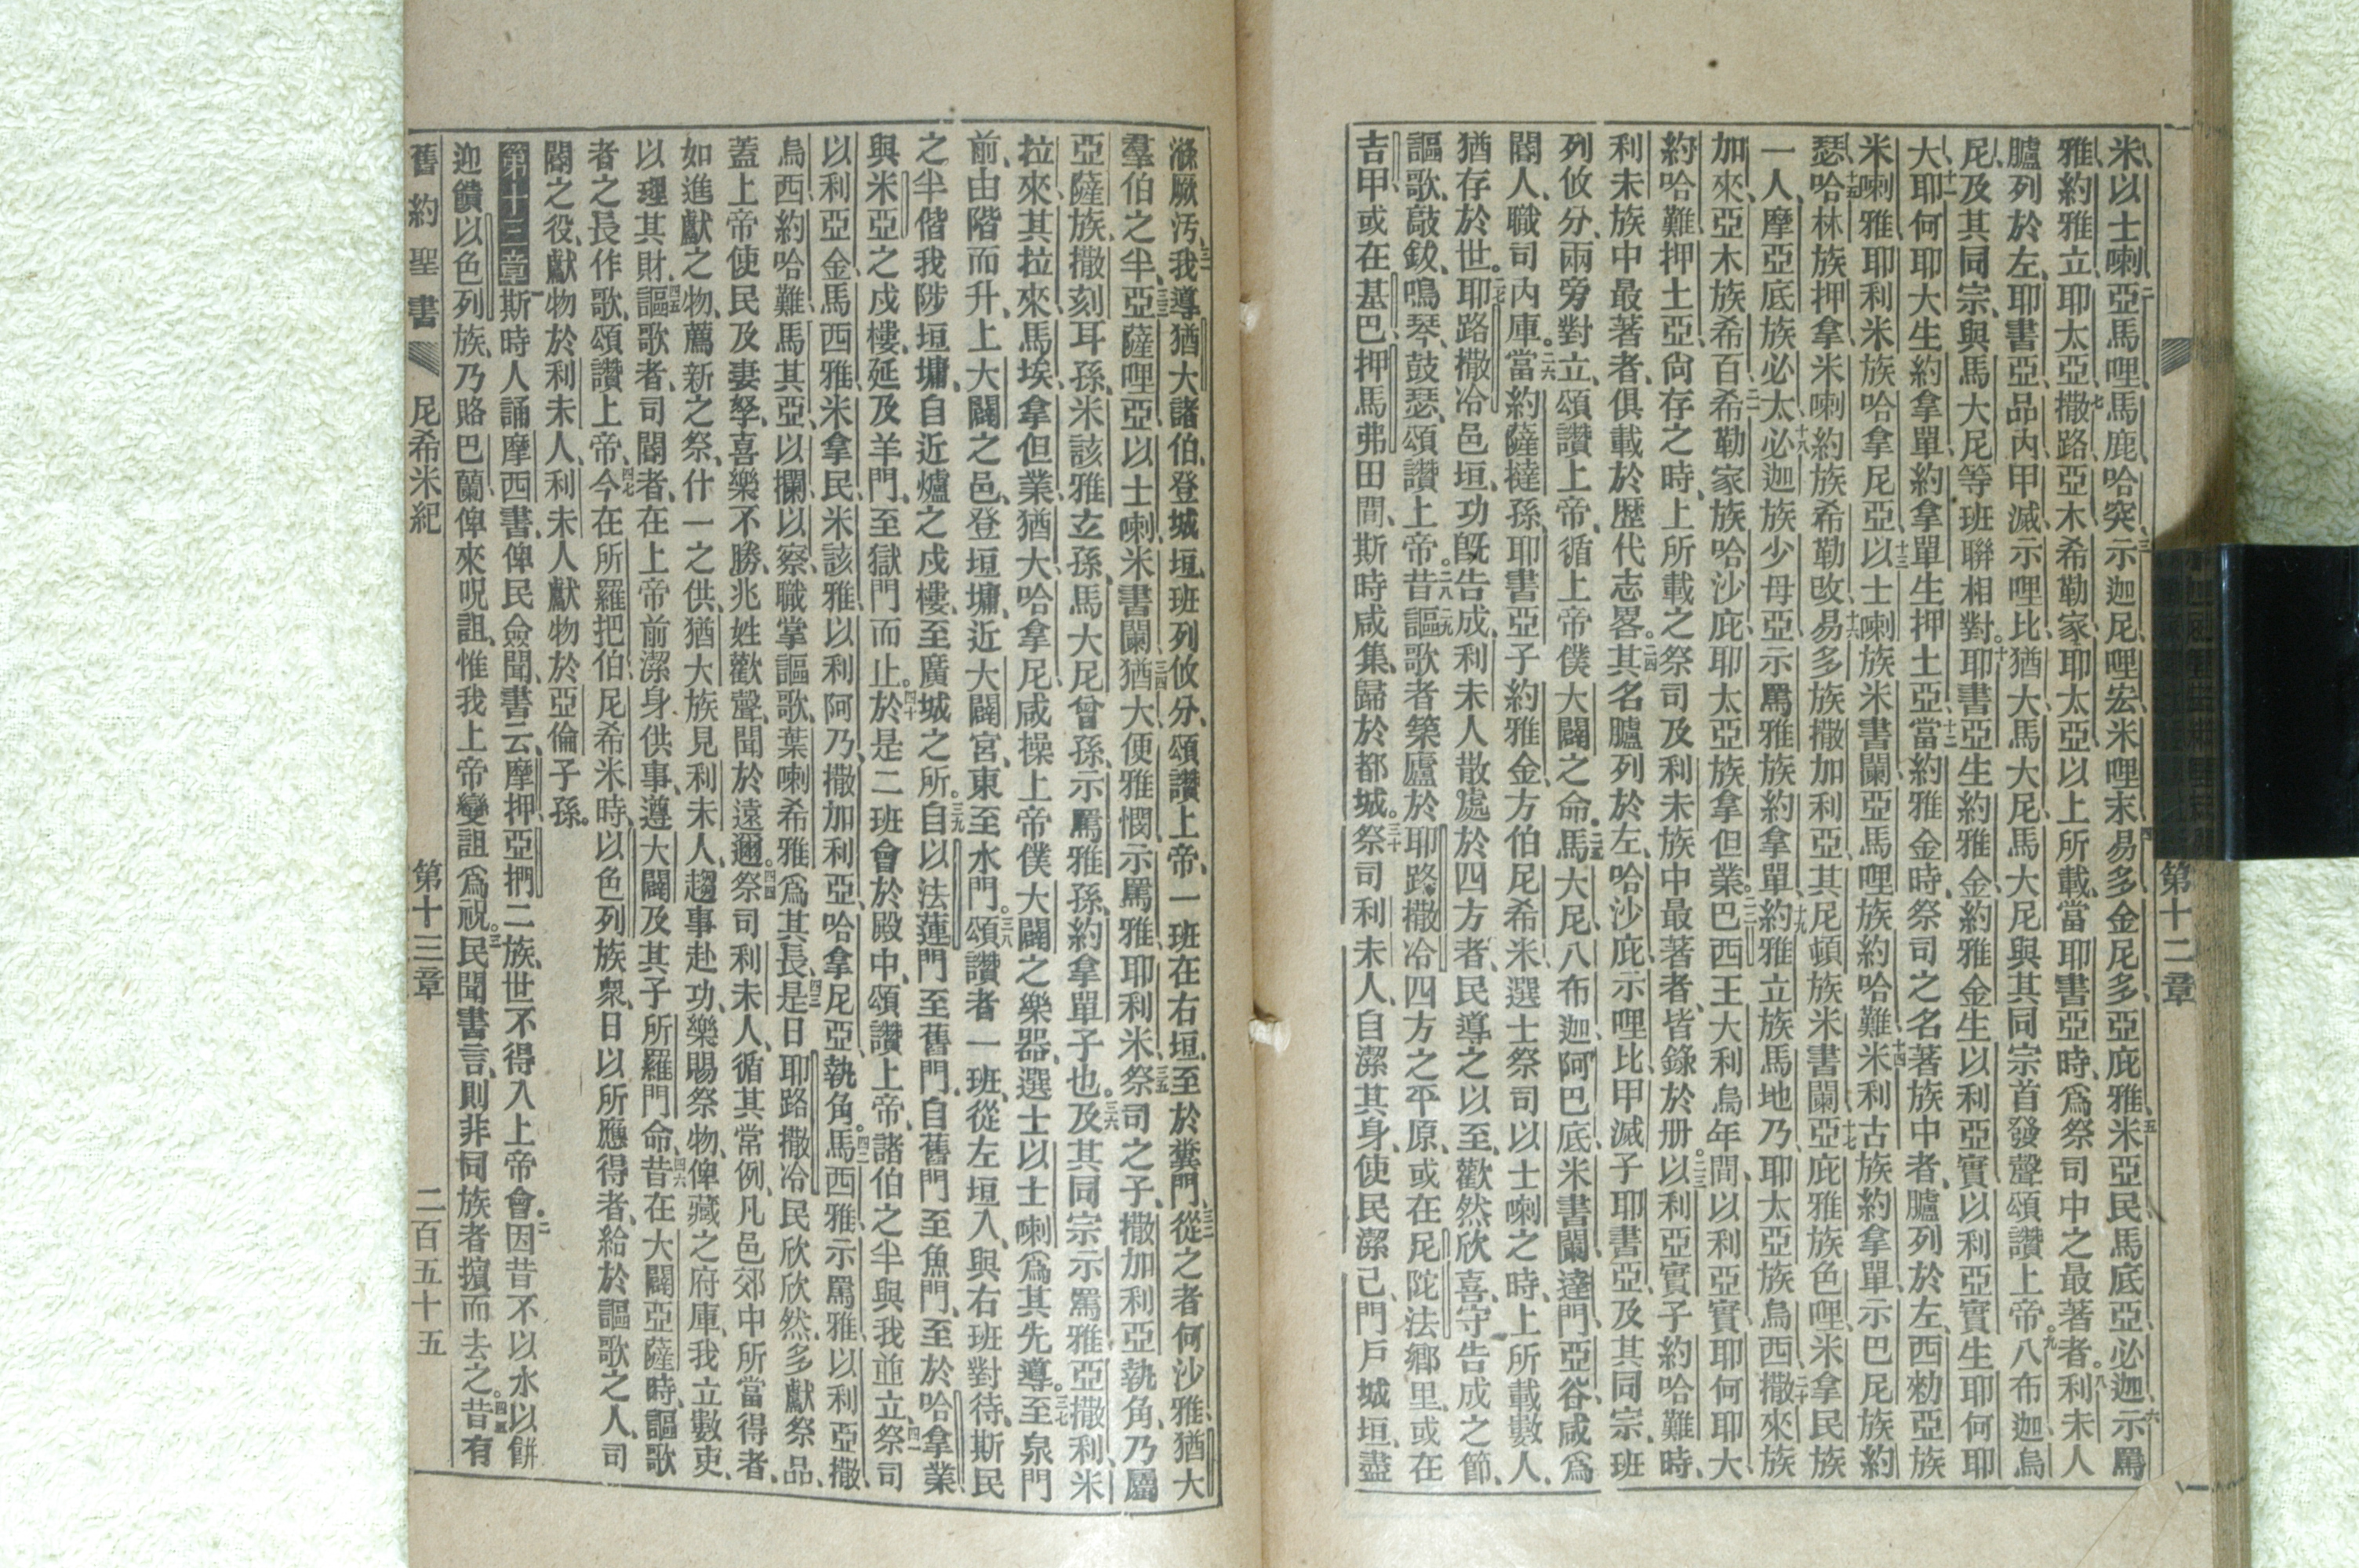 米以士喇亞馬哩馬鹿哈突示迦尼哩宏米哩末易多金尼多亞庇雅米亞民馬底亞必迦示罵
雅約雅立耶太亞撒路亞木希勒家耶太亞以上所載當耶書亞時爲祭司中之最著者利未人
臚列於左耶書亞品內甲滅示哩比猶大馬大尼馬大尼與其同宗首發聲頌讚上帝八布迦烏
尼及其同宗與馬大尼等班聯相對耶書亞生約雅金約雅金生以利亞實以利亞實生耶何耶
大耶何耶大生約拿單約拿單生押土亞當約雅金時祭司之名著族中者臚列於左西勑亞族
米喇雅耶利米族哈拿尼亞以士喇族米書闌亞馬哩族約哈難米利古族約拿單示巴尼族約
瑟哈林族押拿米喇約族希勒改易多族撒加利亞其尼頓族米書闌亞庇雅族色哩米拿民族
一人摩亞底族必太必迦族少母亞示罵雅族約拿單約雅立族馬地乃耶太亞族烏西撒來族
加來亞木族希百希勒家族哈沙庇耶太亞族拿但業巴西王大利烏年間以利亞實耶何耶大
約哈難押土亞尙存之時上所載之祭司及利未族中最著者皆錄於册以利亞實子約哈難時
利未族中最著者俱載於歷代志畧其名臚列於左哈沙庇示哩比甲滅子耶書亞及其同宗班
列攸分兩旁對立頌讚上帝循上帝僕大闢之命馬大尼八布迦阿巴底米書闌達門亞谷咸爲
閽人職司內庫當約薩撻孫耶書亞子約雅金方伯尼希米選士祭司以士喇之時上所載數人
猶存於世耶路撒冷邑垣功旣告成利未人散處於四方者民導之以至歡然欣喜守告成之節
謳歌敲鈸鳴琴鼓瑟頌讚上帝昔謳歌者築廬於耶路撒冷四方之平原或在尼陀法鄉里或在
吉甲或在基巴押馬弗田間斯時咸集歸於都城祭司利未人自潔其身使民潔己門戶城垣盡
第十二章
滌厥污我導猶大諸伯登城垣班列攸分頌讚上帝一班在右垣至於糞門從之者何沙雅猶大
羣伯之半亞薩哩亞以士喇米書闌猶大便雅憫示罵雅耶利米祭司之子撒加利亞執角乃屬
亞薩族撒刻耳孫米該雅玄孫馬大尼曾孫示罵雅孫約拿單子也及其同宗示罵雅亞撒利米
拉來其拉來馬埃拿但業猶大哈拿尼咸操上帝僕大闢之樂器選士以士喇爲其先導至泉門
前由階而升上大闢之邑登垣墉近大闢宮東至水門頌讚者一班從左垣入與右班對待斯民
之半偕我陟垣墉自近爐之戍樓至廣城之所自以法蓮門至舊門自舊門至魚門至於哈拿業
與米亞之戍樓延及羊門至獄門而止於是二班會於殿中頌讚上帝諸伯之半與我並立祭司
以利亞金馬西雅米拿民米該雅以利阿乃撒加利亞哈拿尼亞執角馬西雅示罵雅以利亞撒
烏西約哈難馬其亞以攔以察職掌謳歌葉喇希雅爲其長是日耶路撒冷民欣欣然多獻祭品
蓋上帝使民及妻孥喜樂不勝兆姓歡聲聞於遠邇祭司利未人循其常例凡邑郊中所當得者
如進獻之物薦新之祭什一之供猶大族見利未人趨事赴功樂賜祭物俾藏之府庫我立數吏
以理其財謳歌者司閽者在上帝前潔身供事遵大闢及其子所羅門命昔在大闢亞薩時謳歌
者之長作歌頌讚上帝今在所羅把伯尼希米時以色列族衆日以所應得者給於謳歌之人司
閽之役獻物於利未人利未人獻物於亞倫子孫
第十三章斯時人誦摩西書俾民僉聞書云摩押亞捫二族世不得入上帝會因昔不以水以餅
迎饋以色列族乃賂巴蘭俾來呪詛惟我上帝變詛爲祝民聞書言則非同族者擯而去之昔有
舊約聖書 尼希米紀 第十三章 二百五十五